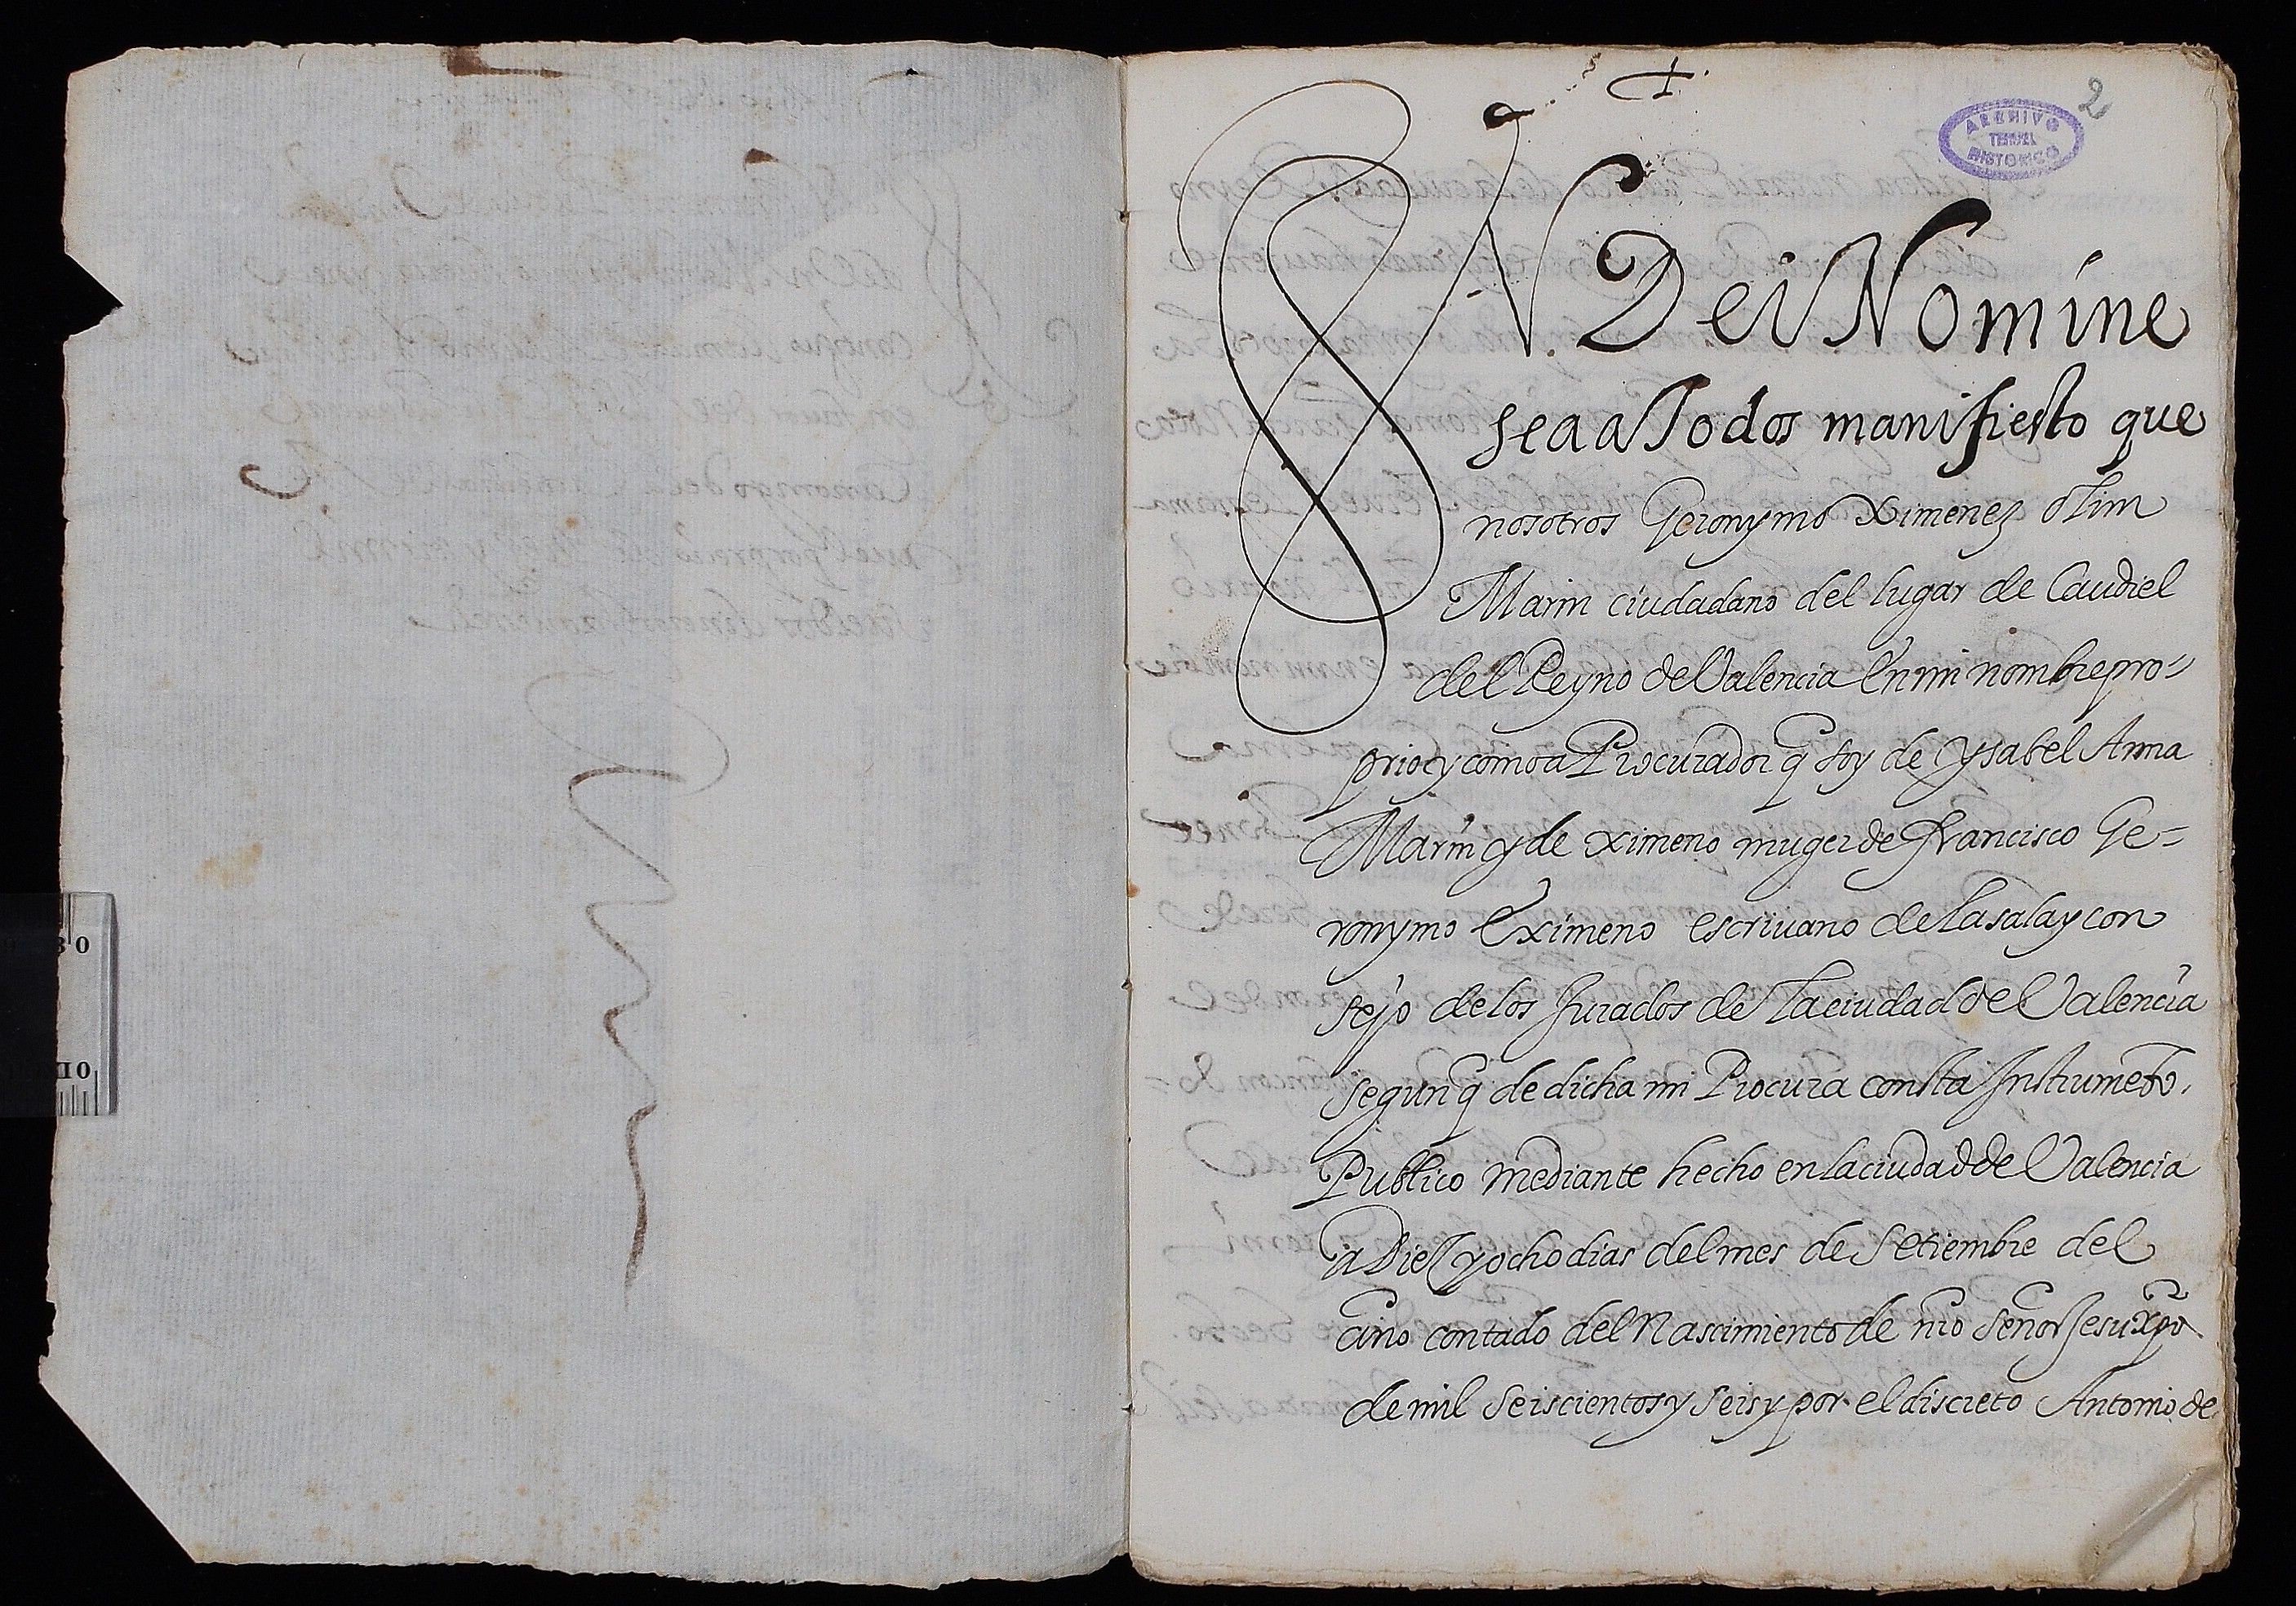 2
ARCHIVO
TERUEL
HISTORICO
IN Dei Nomine
sea a Todos manifiesto que
nosotros Geronymo Ximenez olim
Marin ciudadano del lugar de Caudiel
del Reyno de Valencia En mi nombre pro=
prio y como a Procurador q̃ soy de Ysabel Anna
Marin y de Ximeno muger de Francisco Ge=
ronymo Eximeno escriuano de la sala y con
sejo de los Jurados de la ciudad de Valencia
segun q̃ de dicha mi Procura consta Instrumẽto
Publico mediante hecho en la ciudad de Valencia
a Diez y ocho dias del mes de Setiembre del
año contado del Nascimiento de nr̃o Señor Jesu xp̃o
de mil seiscientos y seis y por el discreto Antonio de
30
10